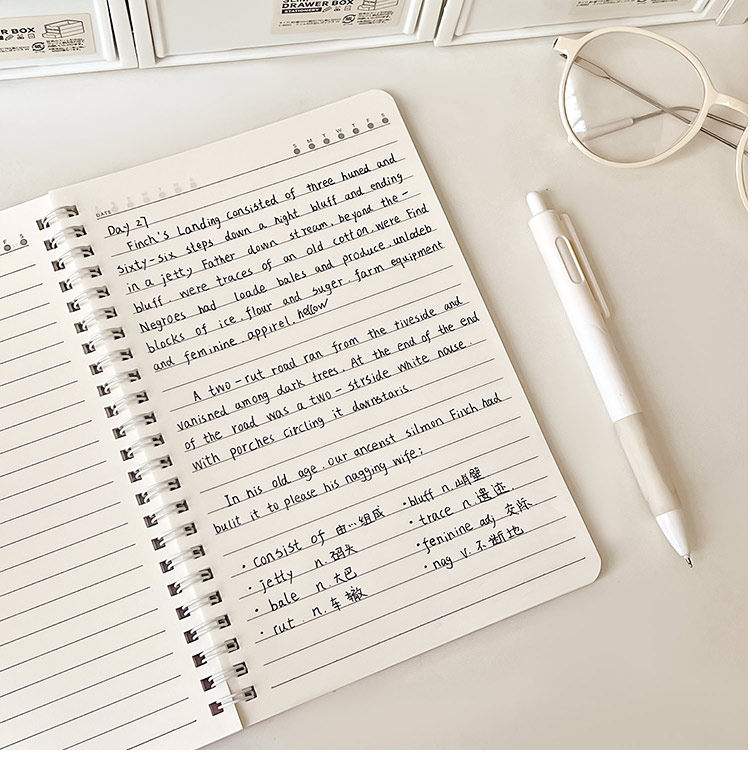 DRAWER BOX
STATIONERY
DRAWER BOX
STATIONERY
S M T W T F S
F S
DATE
Day 27
Finch's Landing consisted of three huned and
sixty-six steps down a night bluff and ending
in a jetty. Father down stream, beyond the-
bluff, were traces of an old cotton were Find
Negroes had loade bales and produce, unloadeb
blocks of ice, flour and suger, farm equipment
and feminine appirel. hellow
A two-rut road ran from the riveside and
vanisned among dark trees. At the end of the end
of the road was a two-strside white nouse.
with porches circling it downstaris.
In his old age, our ancenst silmon Finch had
bulit it to please his nagging wife;
· consist of 由…组成
· bluff n. 峭壁
· jetty n. 码头
· trace n. 遗迹.
· bale n. 大巴
· feninine adj. 交际
· rut n. 车辙
· nag v. 不断地